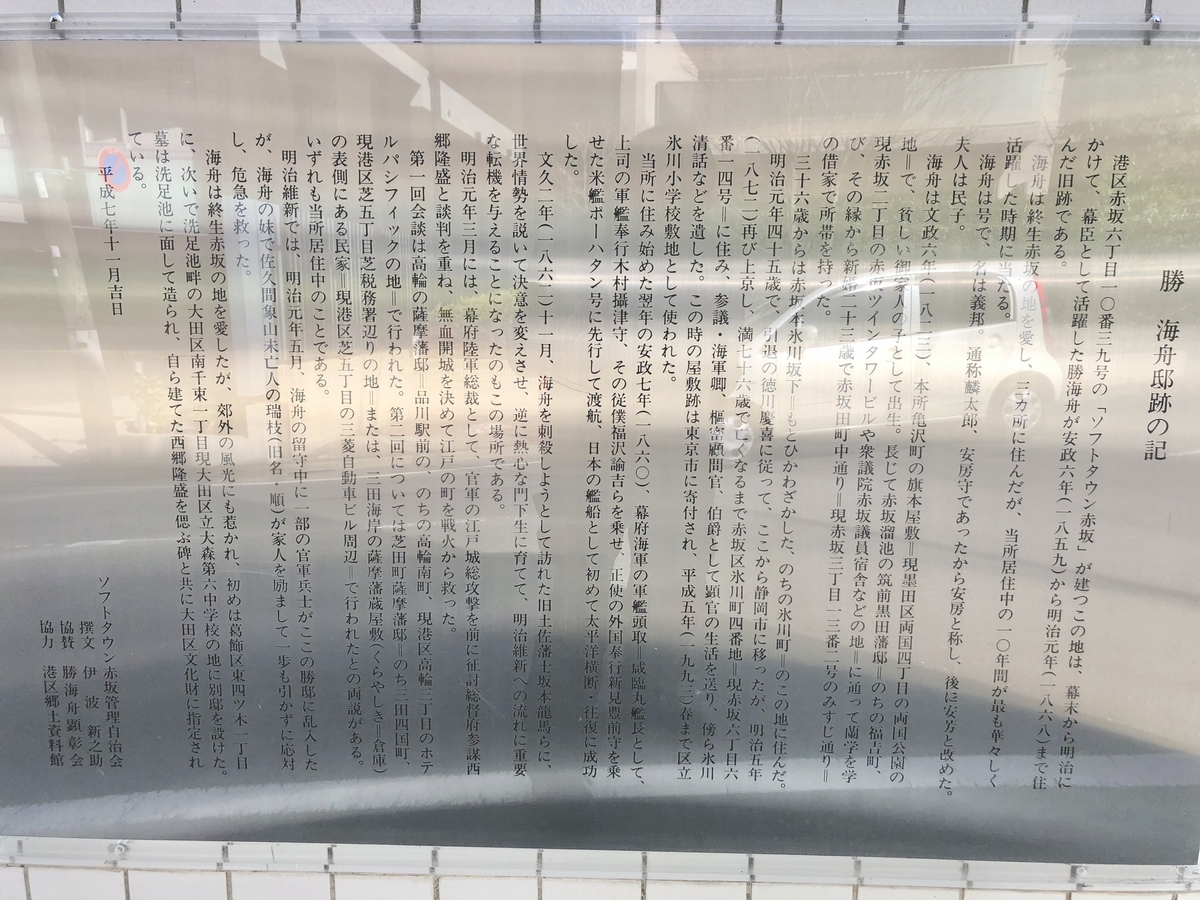 勝 海舟邸跡の記
港区赤坂六丁目一〇番三九号の「ソフトタウン赤坂」が建つこの地は、幕末から明治に
かけて、幕臣として活躍した勝海舟が安政六年(一八五九)から明治元年(一八六八)まで住
んだ旧跡である。
海舟は終生赤坂の地を愛し、三カ所に住んだが、当所居住中の一〇年間が最も華々しく
活躍した時期に当たる。
海舟は号で、名は義邦。通称麟太郎、安房守であったから安房と称し、後に安芳と改めた。
夫人は民子。
海舟は文政六年(一八二三)、本所亀沢町の旗本屋敷=現墨田区両国四丁目の両国公園の
地=で、貧しい御家人の子として出生。長じて赤坂溜池の筑前黒田藩邸=のちの福吉町、
現赤坂二丁目の赤坂ツインタワービルや衆議院赤坂議員宿舎などの地=に通って蘭学を学
び、その縁から新婚二十三歳で赤坂田町中通り=現赤坂三丁目一三番二号のみすじ通り=
の借家で所帯を持った。
三十六歳からは赤坂本氷川坂下=もとひかわざかした、のちの氷川町=のこの地に住んだ。
明治元年四十五歳で、引退の徳川慶喜に従って、ここから静岡市に移ったが、明治五年
(一八七二)再び上京し、満七十六歳で亡くなるまで赤坂区氷川町四番地=現赤坂六丁目六
番一四号=に住み、参議・海軍卿、枢密顧問官、伯爵として顕官の生活を送り、傍ら氷川
清話などを遺した。この時の屋敷跡は東京市に寄付され、平成五年(一九九三)春まで区立
氷川小学校敷地として使われた。
当所に住み始めた翌年の安政七年(一八六〇)、幕府海軍の軍艦頭取=咸臨丸艦長として、
上司の軍艦奉行木村摂津守、その従僕福沢諭吉らを乗せ、正使の外国奉行新見豊前守を乗
せた米艦ポーハタン号に先行して渡航、日本の艦船として初めて太平洋横断・往復に成功
した。
文久二年(一八六二)十一月、海舟を刺殺しようとして訪れた旧土佐藩士坂本龍馬らに、
世界情勢を説いて決意を変えさせ、逆に熱心な門下生に育てて、明治維新への流れに重要
な転機を与えることになったのもこの場所である。
明治元年三月には、幕府陸軍総裁として、官軍の江戸城総攻撃を前に征討総督府参謀西
郷隆盛と談判を重ね、無血開城を決めて江戸の町を戦火から救った。
第一回会談は高輪の薩摩藩邸=品川駅前の、のちの高輪南町、現港区高輪三丁目のホテ
ルパシフィックの地=で行われた。第二回については芝田町薩摩藩邸=のち三田四国町、
現港区芝五丁目芝税務署辺りの地=または、三田海岸の薩摩藩蔵屋敷(くらやしき=倉庫)
の表側にある民家=現港区芝五丁目の三菱自動車ビル周辺=で行われたとの両説がある。
いずれも当所居住中のことである。
明治維新では、明治元年五月、海舟の留守中に一部の官軍兵士がここの勝邸に乱入した
が、海舟の妹で佐久間象山未亡人の瑞枝(旧名・順)が家人を励まして一歩も引かずに応対
し、危急を救った。
海舟は終生赤坂の地を愛したが、郊外の風光にも惹かれ、初めは葛飾区東四ツ木一丁目
に、次いで洗足池畔の大田区南千束一丁目現大田区立大森第六中学校の地に別邸を設けた。
墓は洗足池に面して造られ、自ら建てた西郷隆盛を偲ぶ碑と共に大田区文化財に指定され
ている。
平成七年十一月吉日
ソフトタウン赤坂管理自治会
撰文 伊波新之助
協賛 勝海舟顕彰会
協力 港区郷土資料館